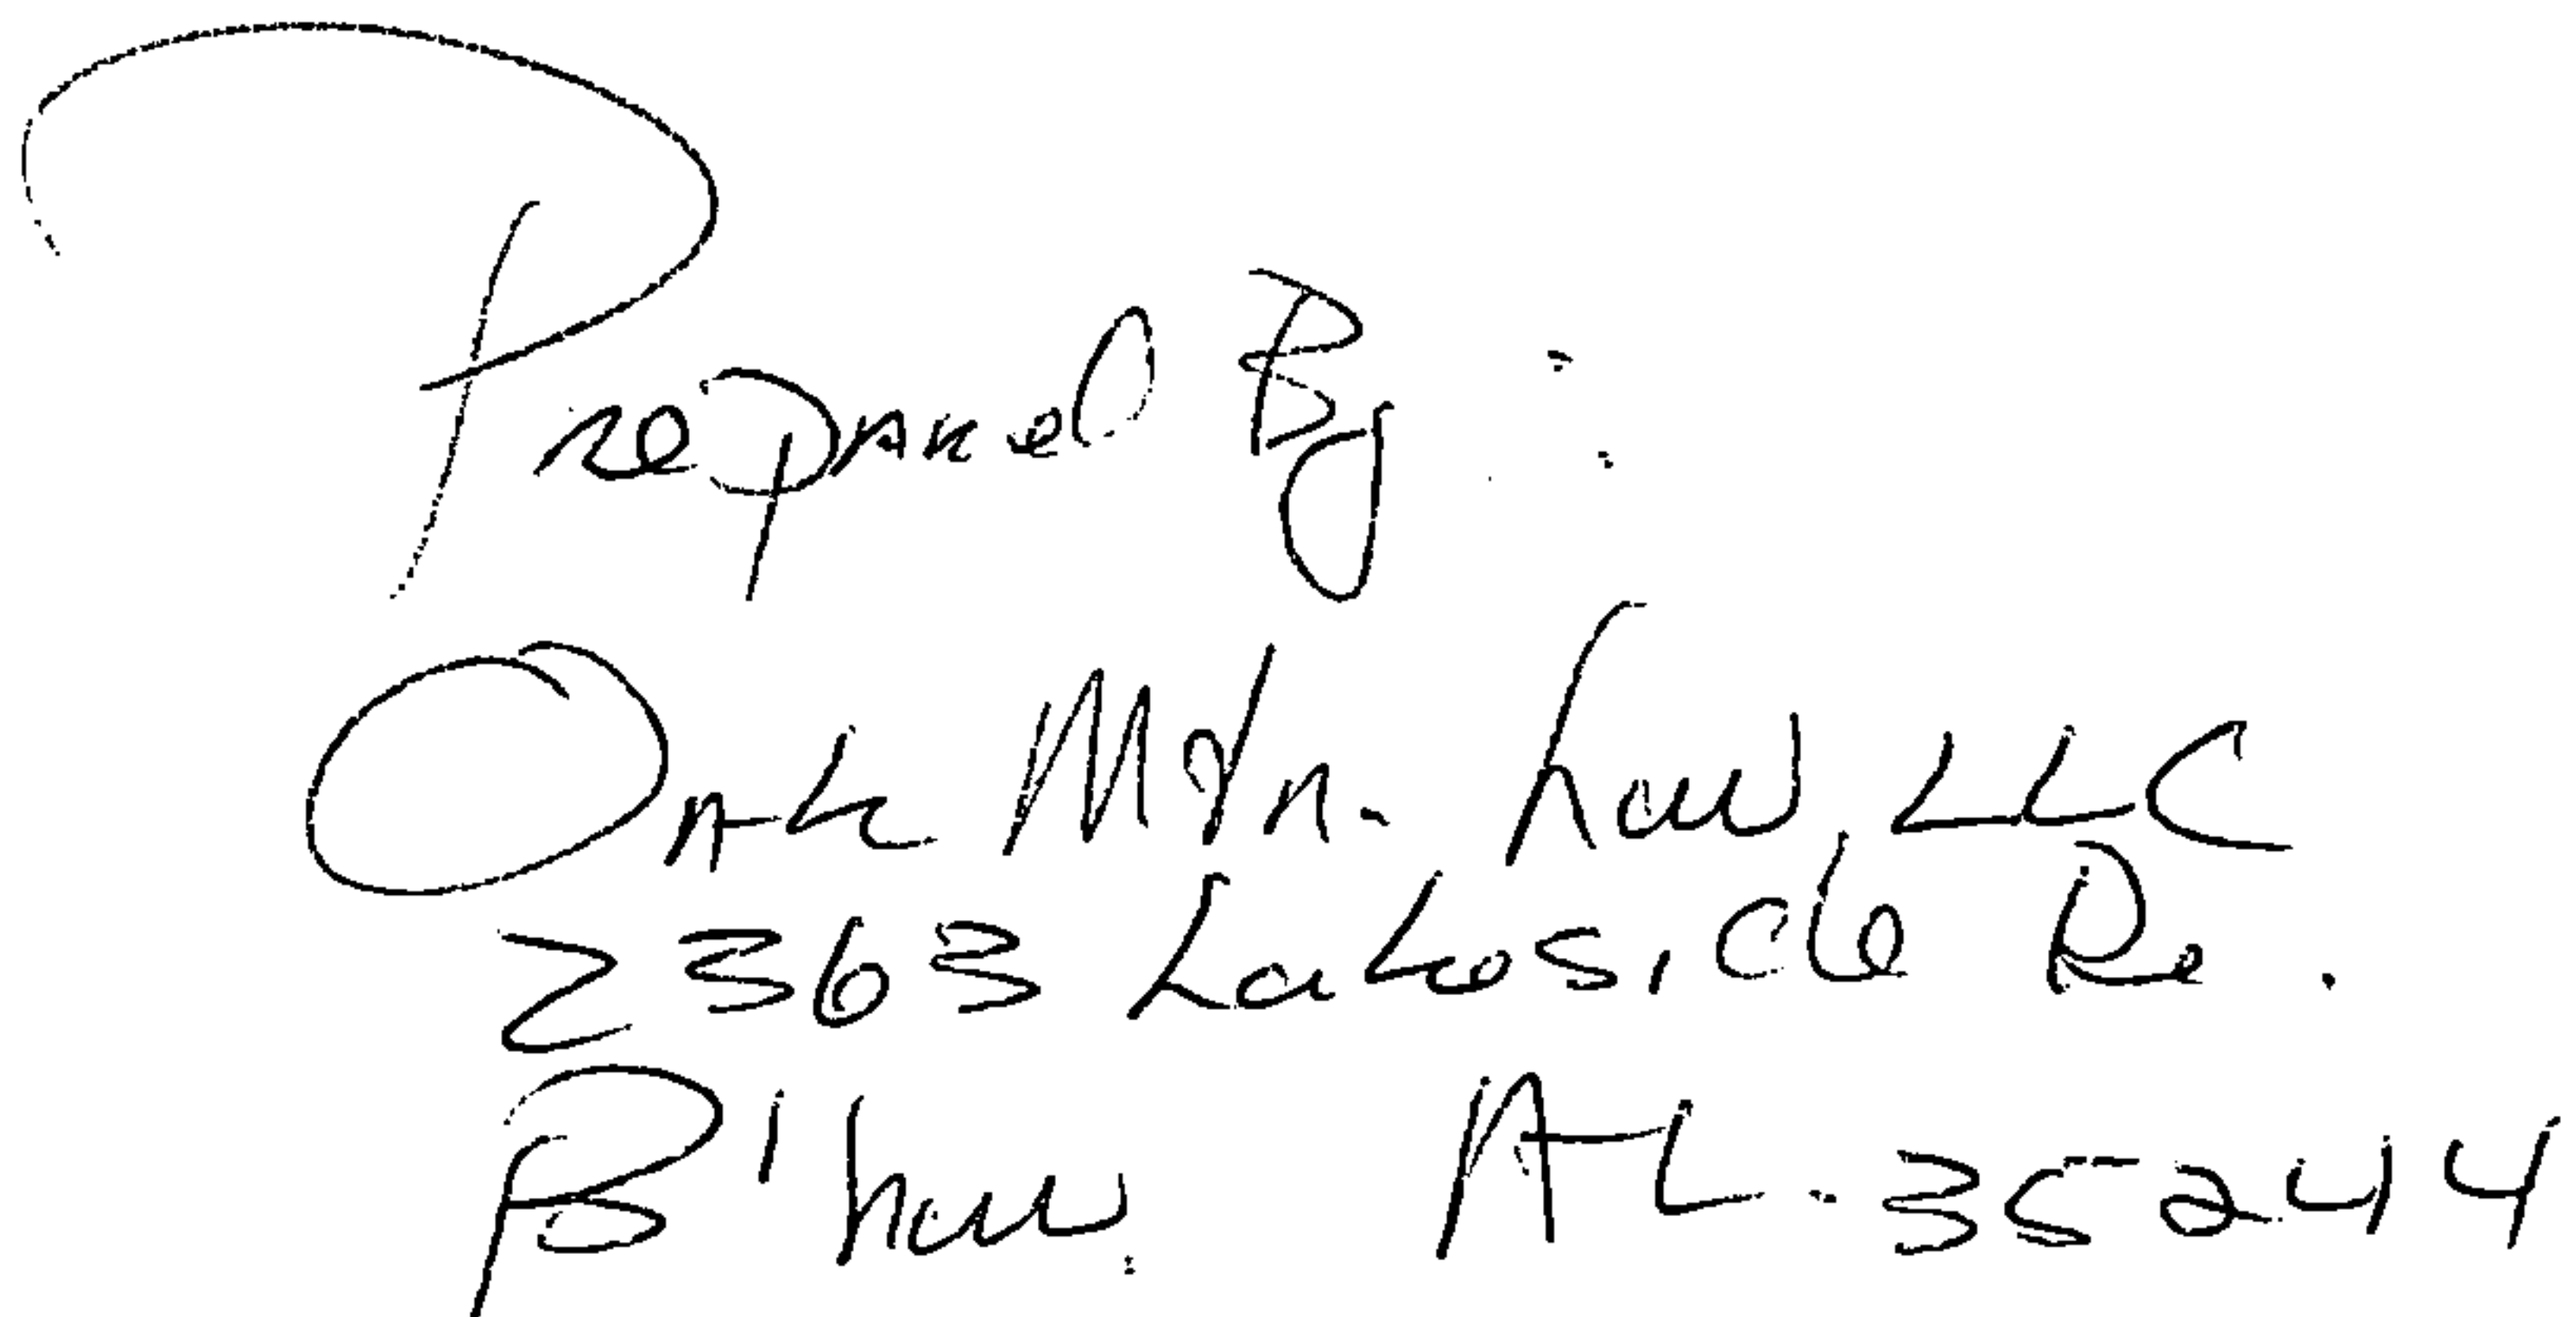 Prepared By:
Oak Mtn. Law, LLC
2363 Lakeside Dr.
B'ham. AL. 35244